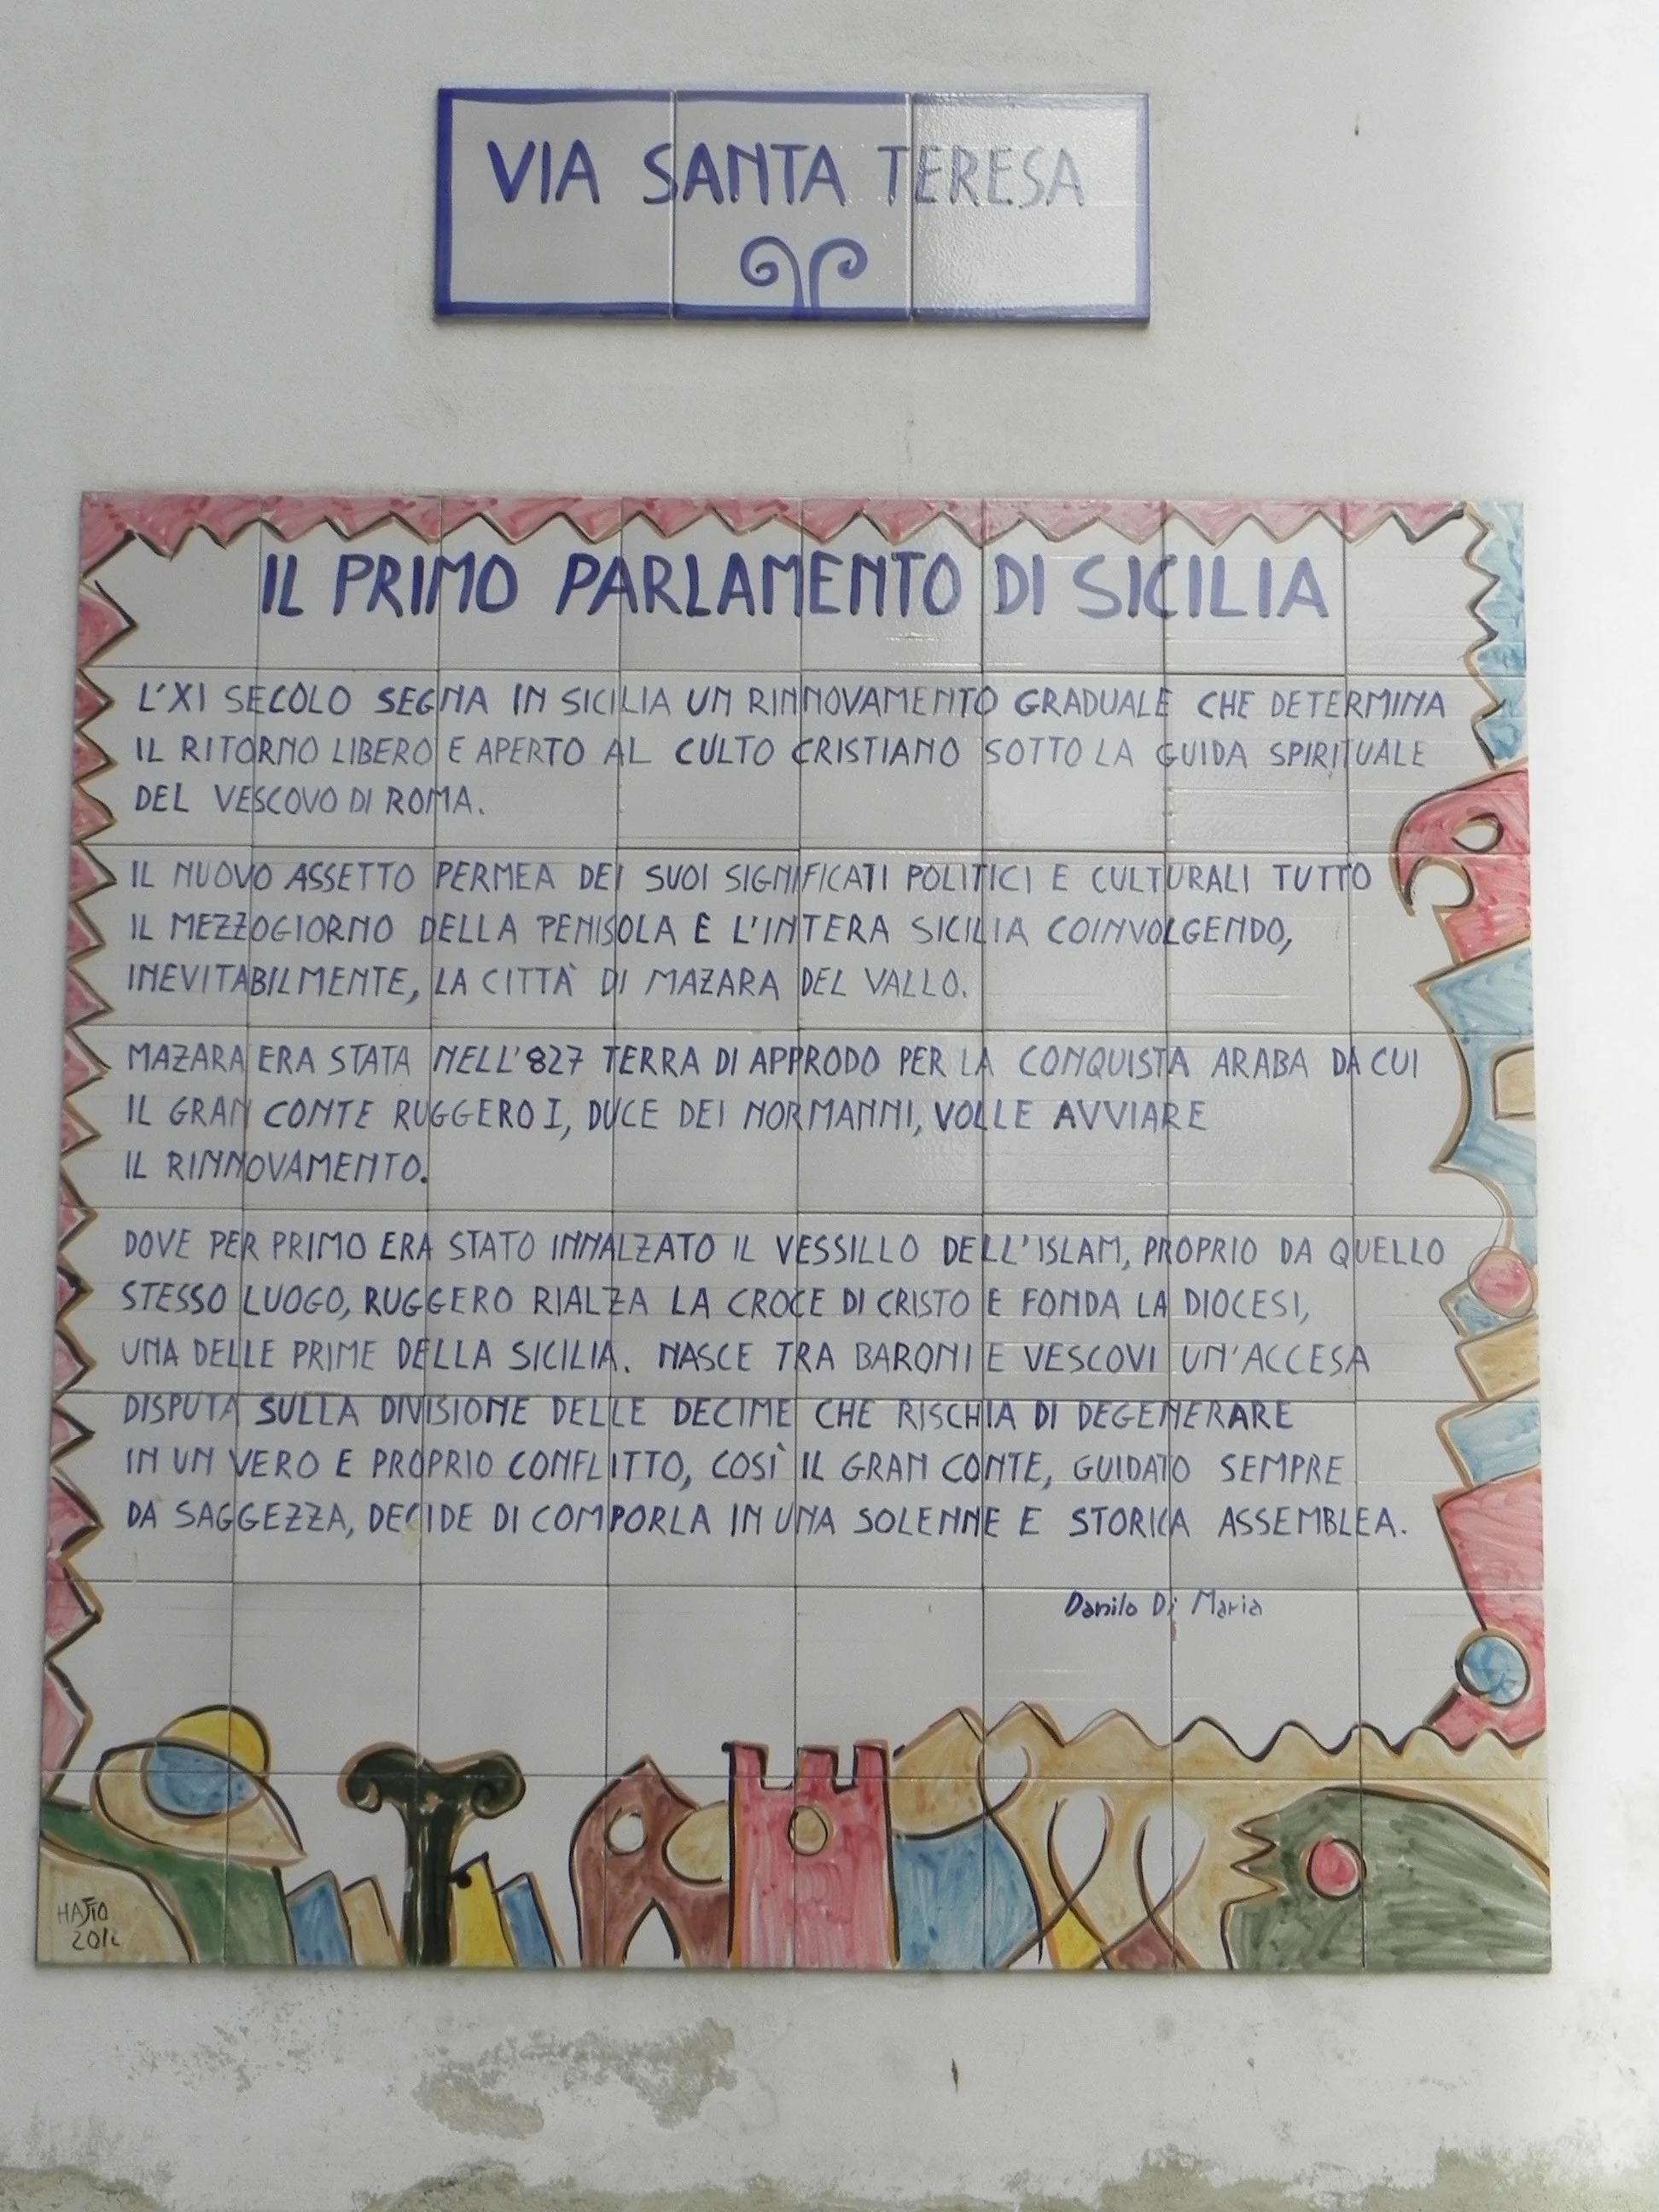 VIA SANTA TERESA
IL PRIMO PARLAMENTO DI SICILIA
L'XI SECOLO SEGNA IN SICILIA UN RINNOVAMENTO GRADUALE CHE DETERMINA
IL RITORNO LIBERO E APERTO AL CULTO CRISTIANO SOTTO LA GUIDA SPIRITUALE
DEL VESCOVO DI ROMA.
IL NUOVO ASSETTO PERMEA DEI SUOI SIGNIFICATI POLITICI E CULTURALI TUTTO
IL MEZZOGIORNO DELLA PENISOLA E L'INTERA SICILIA COINVOLGENDO,
INEVITABILMENTE, LA CITTÀ DI MAZARA DEL VALLO.
MAZARA ERA STATA NELL'827 TERRA DI APPRODO PER LA CONQUISTA ARABA DA CUI
IL GRAN CONTE RUGGERO I, DUCE DEI NORMANNI, VOLLE AVVIARE
IL RINNOVAMENTO.
DOVE PER PRIMO ERA STATO INNALZATO IL VESSILLO DELL'ISLAM, PROPRIO DA QUELLO
STESSO LUOGO, RUGGERO RIALZA LA CROCE DI CRISTO E FONDA LA DIOCESI,
UNA DELLE PRIME DELLA SICILIA. NASCE TRA BARONI E VESCOVI UN'ACCESA
DISPUTA SULLA DIVISIONE DELLE DECIME CHE RISCHIA DI DEGENERARE
IN UN VERO E PROPRIO CONFLITTO, COSÌ IL GRAN CONTE, GUIDATO SEMPRE
DA SAGGEZZA, DECIDE DI COMPORLA IN UNA SOLENNE E STORICA ASSEMBLEA.
Danilo Di Maria